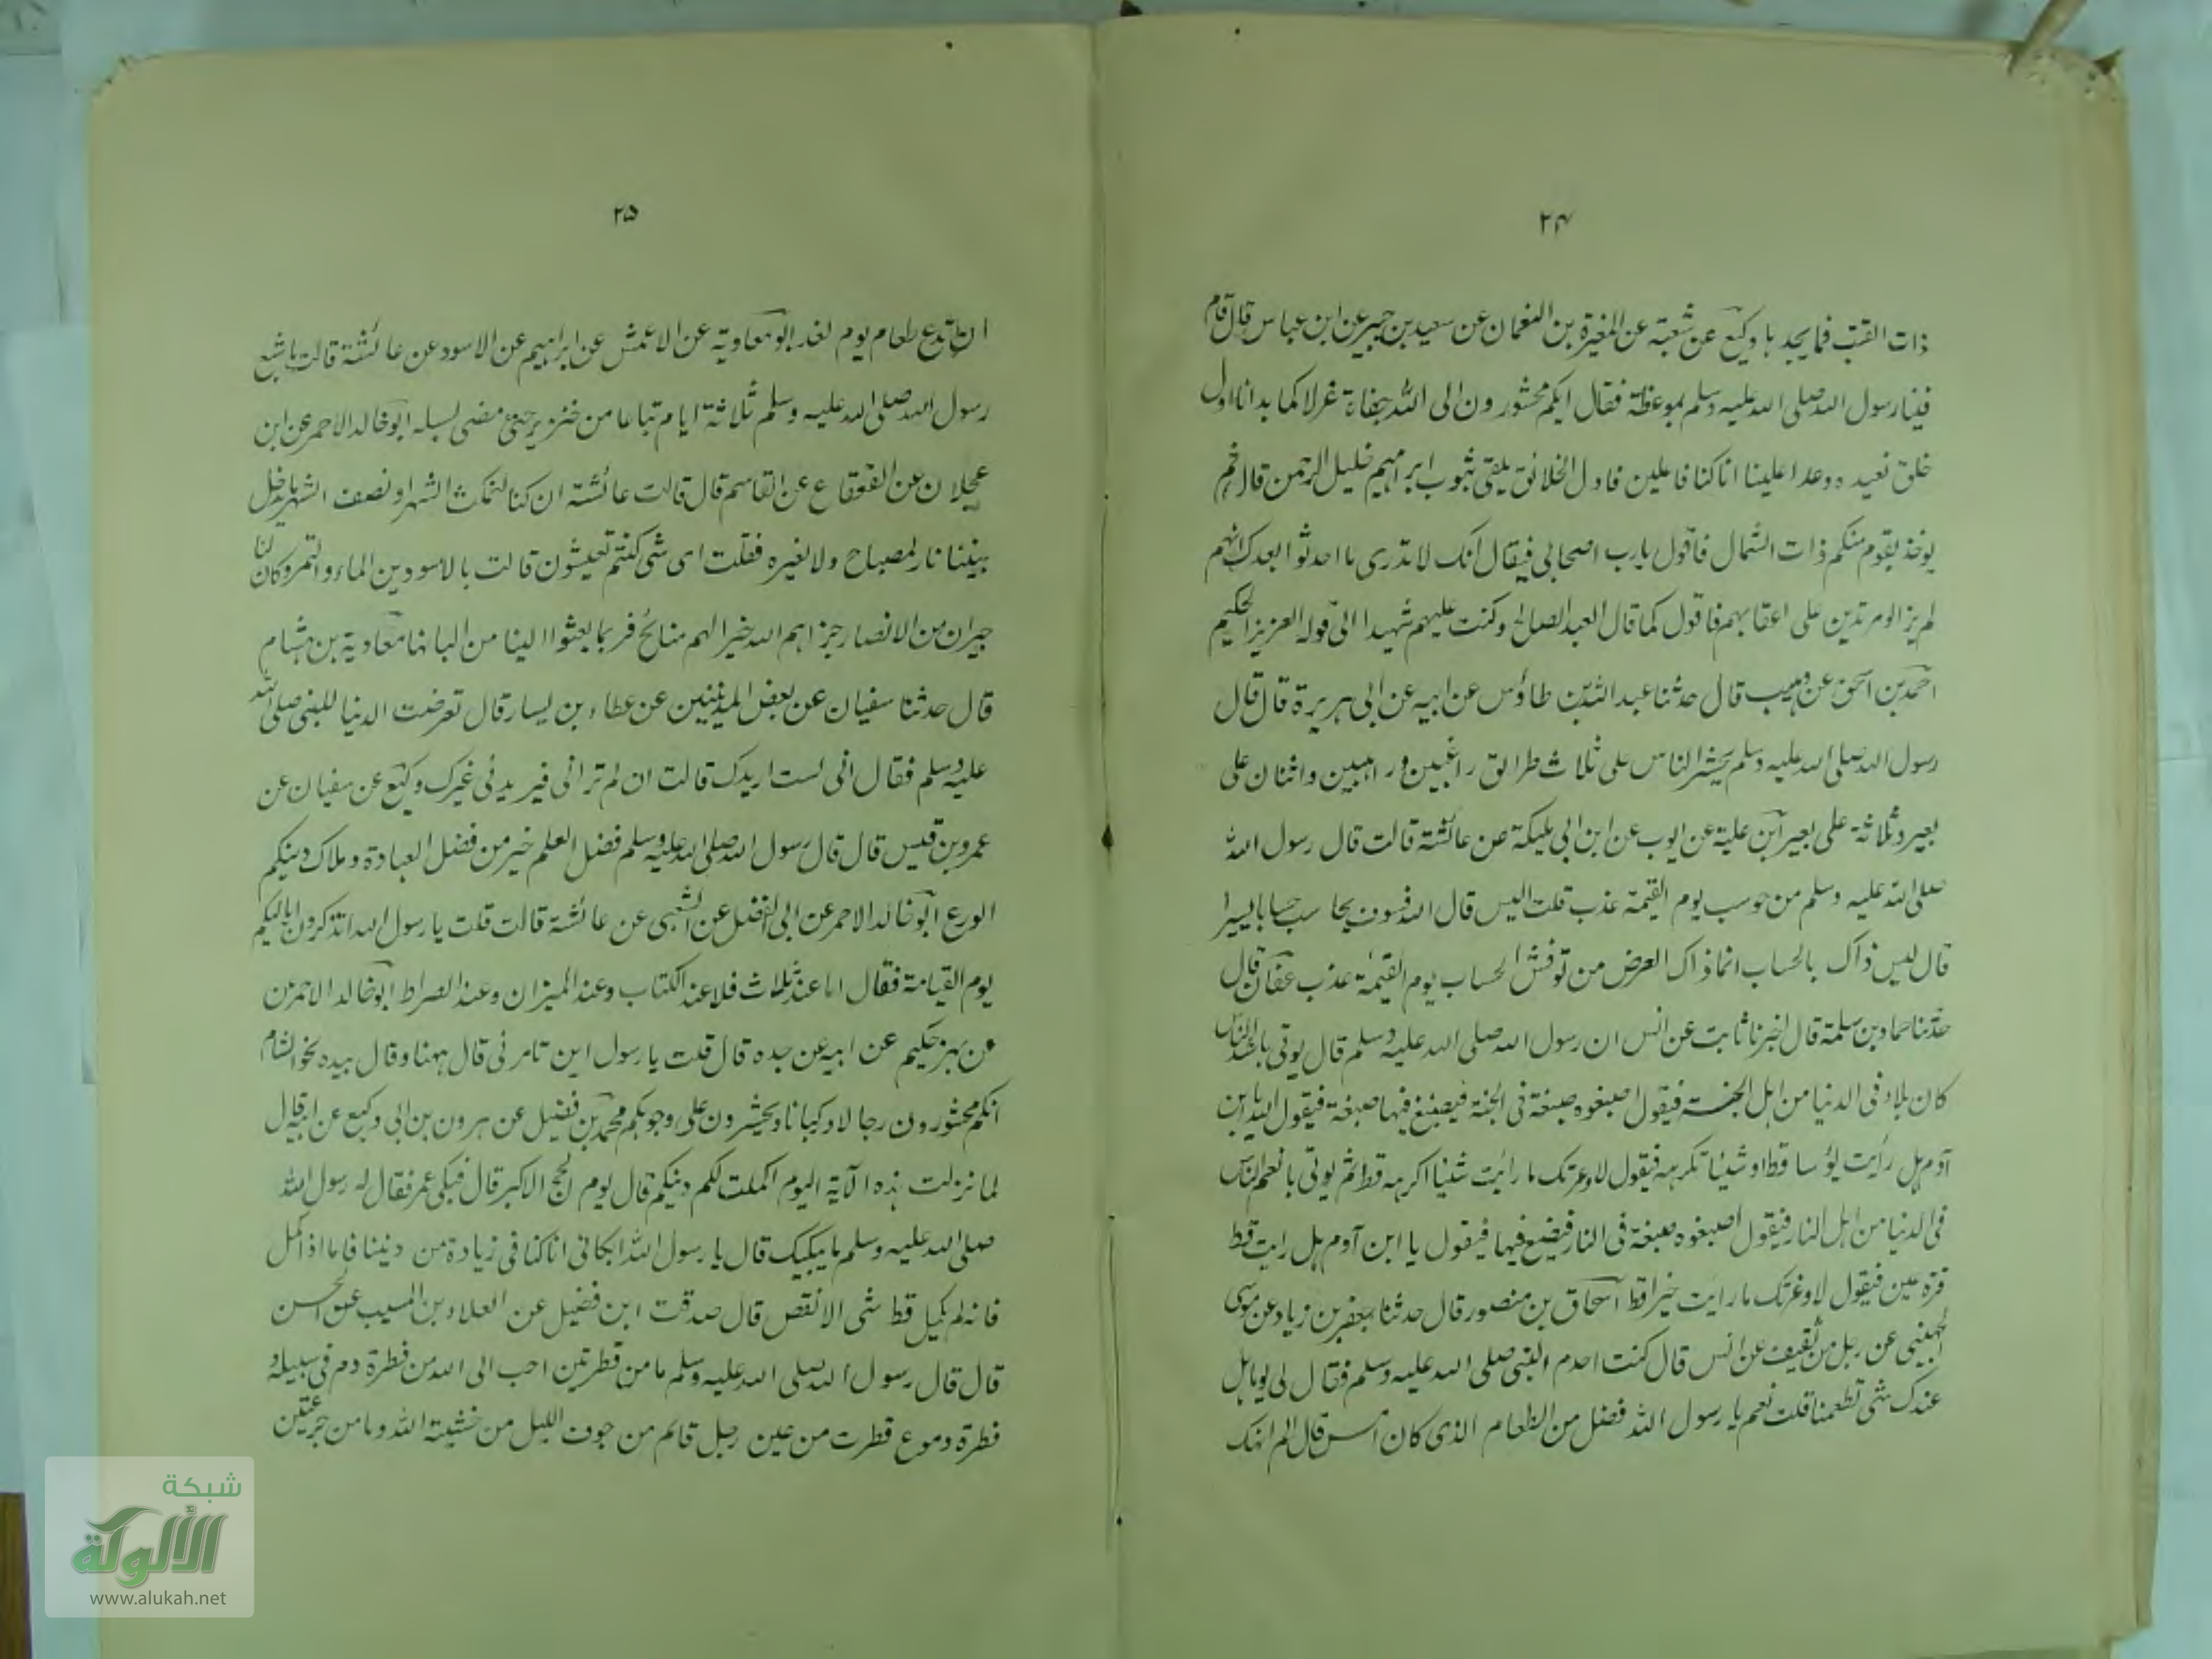 ٢٤
ذات القتب فما يجد ها وكيع عن شعبة عن المغيرة بن النعمان عن سعيد بن جبير عن ابن عباس قال قام
فينا رسول الله صلى الله عليه وسلم بموعظة فقال ايكم محشورون الى الله حفاة غرلا كما بدانا اول
خلق نعيده وعدا علينا انا كنا فاعلين فاول الخلائق يلقى بثوب ابراهيم خليل الرحمن قال ثم
يوخذ بقوم منكم ذات الشمال فاقول يارب اصحابى فيقال انك لا تدرى ما احدثوا بعدك انهم
لم يزالوا مرتدين على اعقابهم فاقول كما قال العبد الصالح وكنت عليهم شهيدا الى قوله العزيز الحكيم
احمد بن اسحق عن وهيب قال حدثنا عبد الله بن طاؤس عن ابيه عن ابى هريرة قال قال
رسول الله صلى الله عليه وسلم يحشر الناس على ثلاث طرائق راغبين وراهبين واثنان على
بعير وثلاثة على بعير ابن علية عن ايوب عن ابن ابى مليكة عن عائشة قالت قال رسول الله
صلى الله عليه وسلم من حوسب يوم القيمة عذب قلت اليس قال الله فسوف يحاسب حسابا يسيرا
قال ليس ذاك بالحساب انما ذاك العرض من نوقش الحساب يوم القيمة عذب عفان قال
حدثنا حماد بن سلمة قال اخبرنا ثابت عن انس ان رسول الله صلى الله عليه وسلم قال يوتى باشد الناس
كان بلاء فى الدنيا من اهل الجنة فيقول اصبغوه صبغة فى الجنة فيصبغ فيها صبغة فيقول الله يا ابن
آدم هل رأيت بؤسا قط او شيئا تكرهه فيقول لا وعزتك ما رأيت شيئا اكرهه قط ثم يوتى بانعم الناس
فى الدنيا من اهل النار فيقول اصبغوه صبغة فى النار فيصبغ فيها فيقول يا ابن آدم هل رايت قط
قرة عين فيقول لا وعزتك ما رايت خيرا قط اسحاق بن منصور قال حدثنا جعفر بن زياد عن موسى
الجهينى عن رجل من ثقيف عن انس قال كنت اخدم النبى صلى الله عليه وسلم فقال لى يوما هل
عندك شى تطعمنا قلت نعم يا رسول الله فضل من الطعام الذى كان امس قال الم انهك
٢٥
ان تدع طعام يوم لغد ابو معاوية عن الاعمش عن ابراهيم عن الاسود عن عائشة قالت ما شبع
رسول الله صلى الله عليه وسلم ثلاثة ايام تباعا من خبز بر حتى مضى لسبله ابو خالد الاحمر عن ابن
عجلان عن القعقاع عن القاسم قال قالت عائشة ان كنا لنمكث الشهر او نصف الشهر ما يدخل
بيتنا نار لمصباح ولا لغيره فقلت اى شى كنتم تعيشون قالت بالاسودين الماء والتمر وكان لنا
جيران من الانصار جزاهم الله خيرا لهم منائح فربما بعثوا الينا من البانها معاوية بن هشام
قال حدثنا سفيان عن بعض المدينيين عن عطاء بن يسار قال تعرضت الدنيا للنبى صلى الله
عليه وسلم فقال انى لست اريدك قالت ان لم تردنى فيريدنى غيرك وكيع عن سفيان عن
عمرو بن قيس قال قال رسول الله صلى الله عليه وسلم فضل العلم خير من فضل العبادة وملاك دينكم
الورع ابو خالد الاحمر عن ابى الفضل عن الشعبى عن عائشة قالت قلت يا رسول الله اتذكرون اهاليكم
يوم القيامة فقال اما عند ثلاث فلا عند الكتاب وعند الميزان وعند الصراط ابو خالد الاحمر عن
عن بهز حكيم عن ابيه عن جده قال قلت يا رسول اين تامرنى قال ههنا وقال بيده نحو الشام
انكم محشورون رجالا وركبانا وتحشرون على وجوهكم محمد بن فضيل عن هرون بن ابى وكيع عن ابيه قال
لما نزلت هذه الآية اليوم اكملت لكم دينكم قال يوم الحج الاكبر قال فبكى عمر فقال له رسول الله
صلى الله عليه وسلم ما يبكيك قال يا رسول الله ابكانى انا كنا فى زيادة من ديننا فاما اذا كمل
فانه لم يكمل قط شى الا نقص قال صدقت ابن فضيل عن العلاء بن المسيب عن الحسن
قال قال رسول الله صلى الله عليه وسلم ما من قطرتين احب الى الله من قطرة دم فى سبيله و
قطرة دموع قطرت من عين رجل قائم من جوف الليل من خشية الله وما من جرعتين
شبكة
الألوكة
www.alukah.net